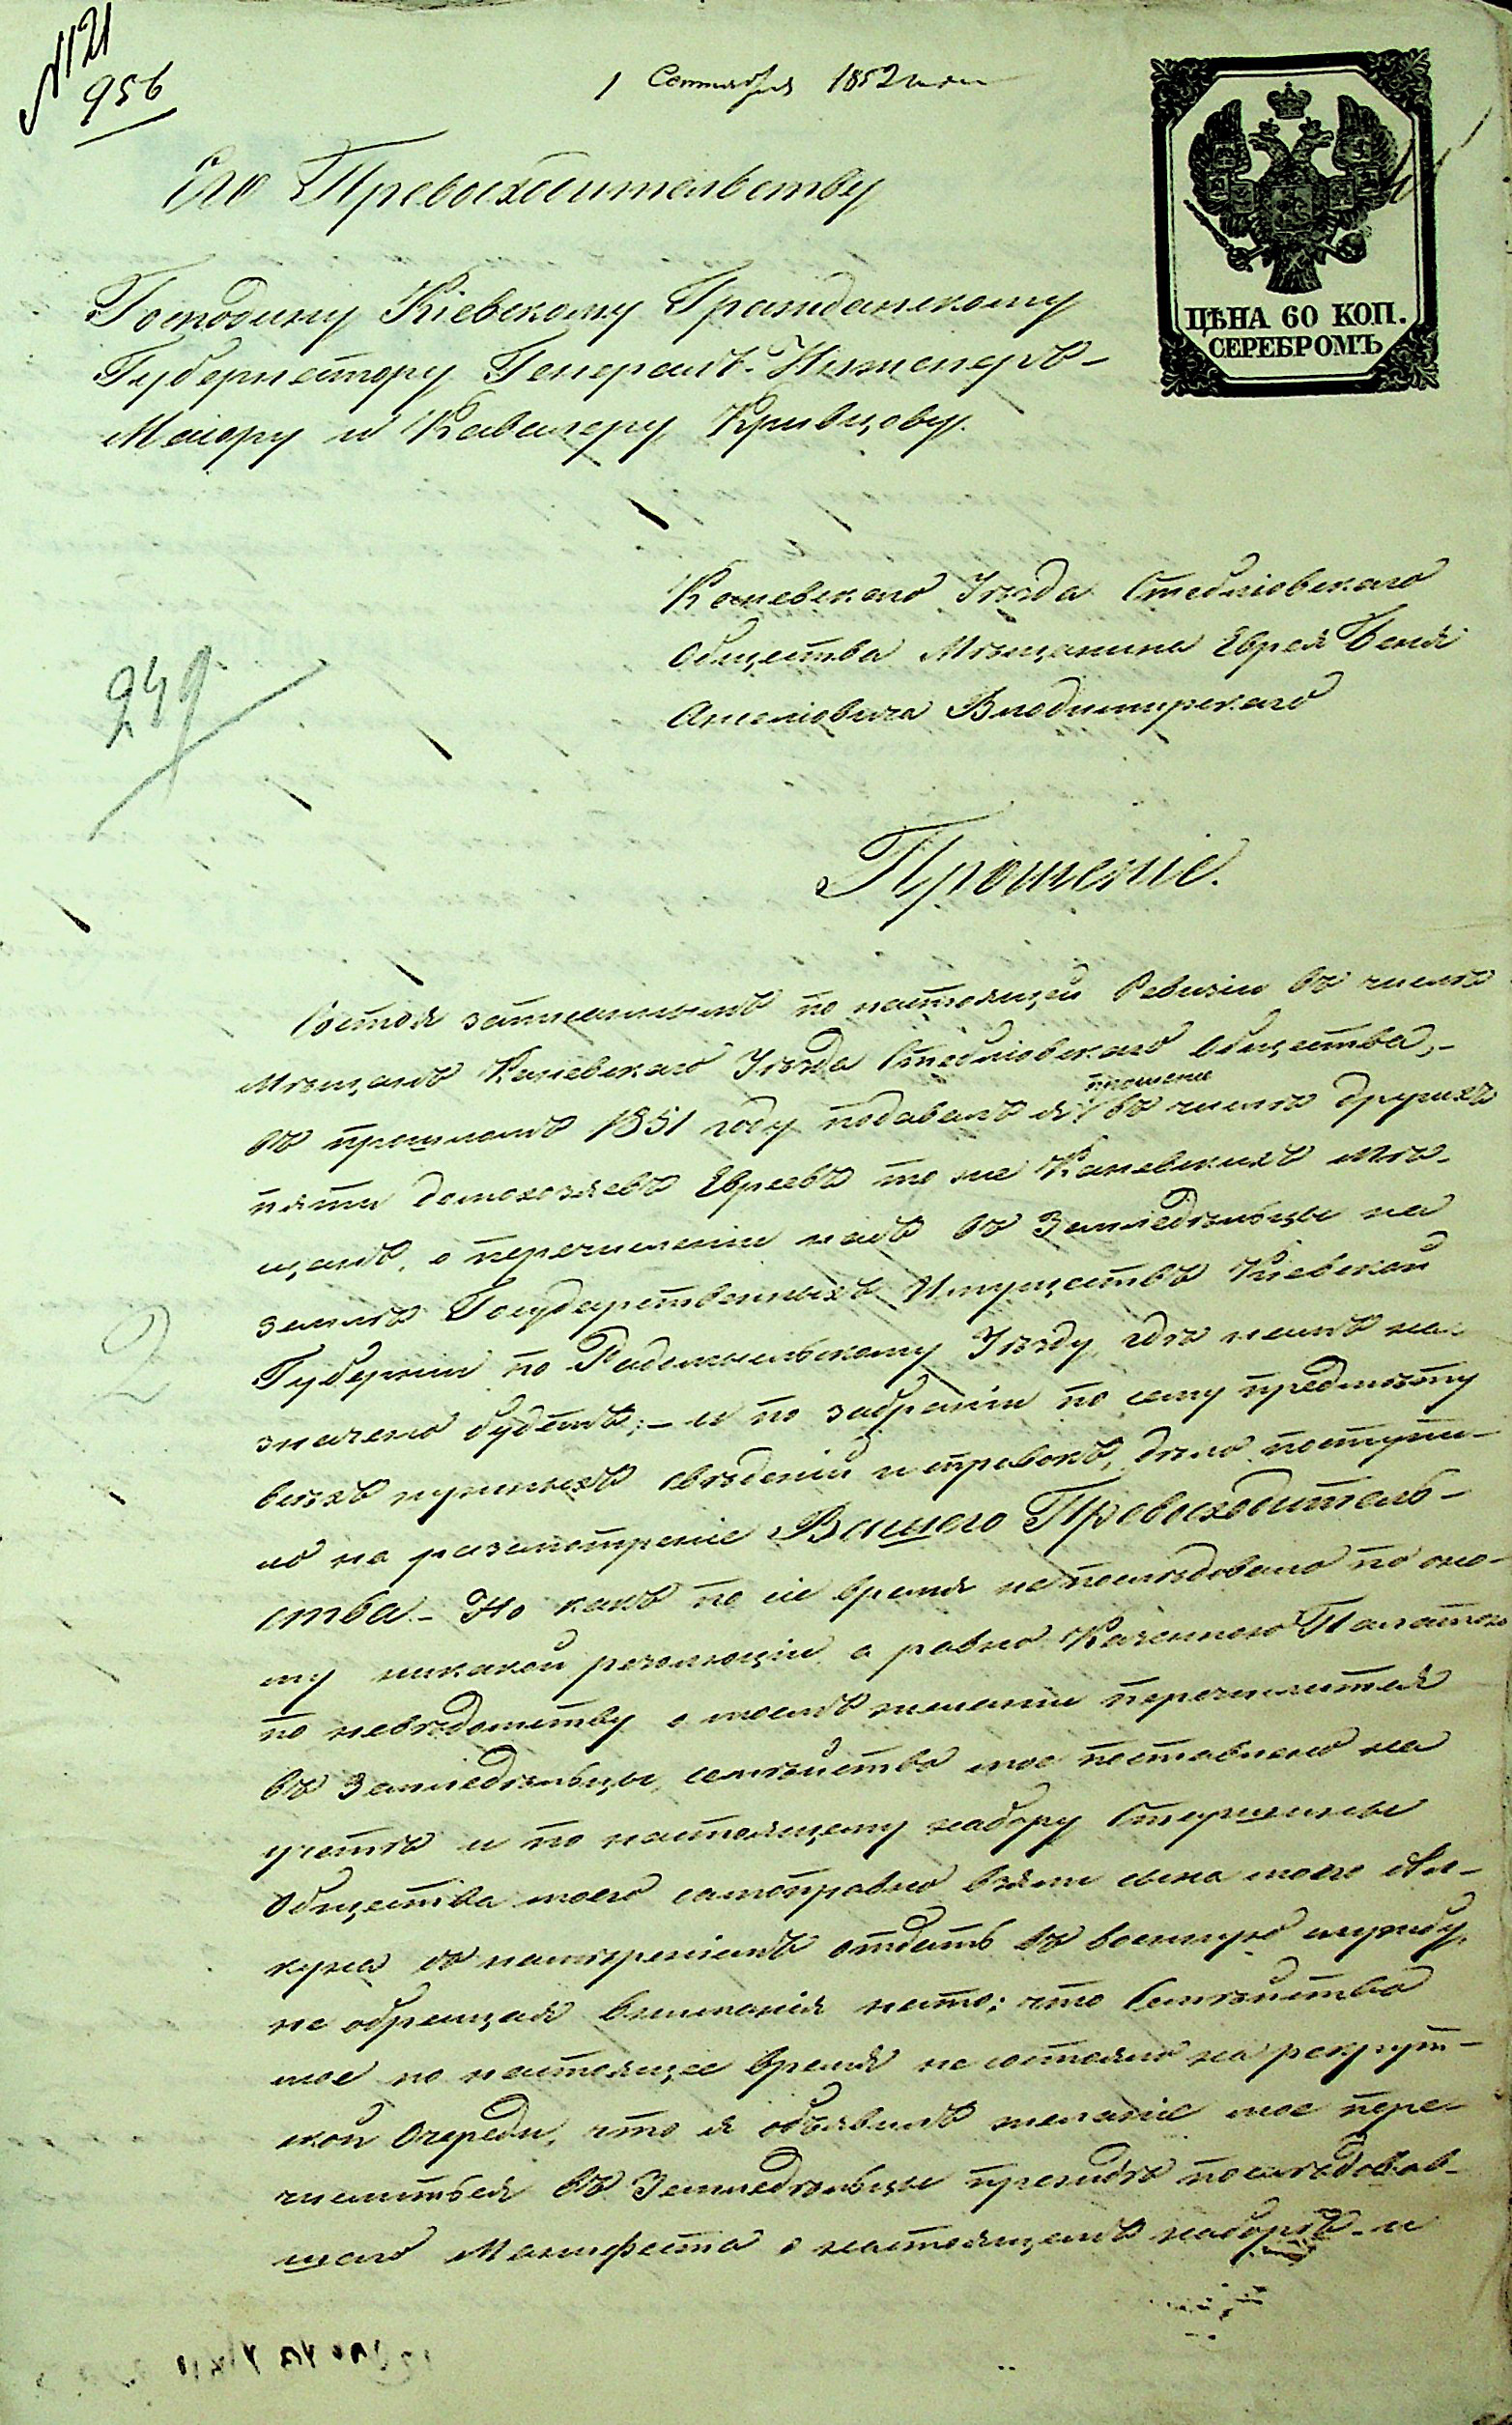 № 121
956
1 Сентября 1852 года
Его Превосходительству
ЦѢНА 60 КОП.
СЕРЕБРОМЪ
Господину Кіевскому Гражданскому
Губернатору Генералъ-Инженеръ-
Маіору и Кавалеру Кривцову.
Каневскаго Уѣзда Стеблiовскаго
Общества Мѣщанина Еврея Беня
Анселіовича Влодимирскаго
249
Прошеніе.
Состоя записаннымъ по настоящей Ревизіи въ числѣ
Мѣщанъ Каневскаго Уѣзда Стебліовскаго Общества,-
прошеніе
въ прошломъ 1851 году подавалъ я въ числѣ другихъ
пяти домохозяевъ Евреевъ то же Каневскихъ мѣ-
щанъ, о перечисленіи насъ въ Земледѣльцы на
землѣ Государственныхъ Имуществъ Кіевской
2
Губерніи по Радомысльскому Уѣзду, гдѣ намъ на-
значено будетъ;- и по забраніи по сему предмѣту
всѣхъ нужныхъ свѣдѣній и справокъ, дѣло поступи-
ло на разсмотреніе Вашего Превосходитель-
ства - Но какъ по сіе время не послѣдовало по оно-
му никакой резолюціи а равно Казенною Палатою
по невѣдомству о моемъ желаніи перечислится
въ Земледѣльцы, семѣйство мое поставлено на
учетъ и по настоящему набору Старшины
Общества моего самоправно взяли сына моего
съ намѣреніемъ отдать въ военную службу,
не обращая вниманія нато; что Семѣйство
мое по настоящее время не состояло на рекрут-
ской Очереди, что я объявилъ желаніе мое пере-
числиться въ Земледѣльцы прежде послѣдовав-
шаго Манифеста о настоящемъ наборѣ - и